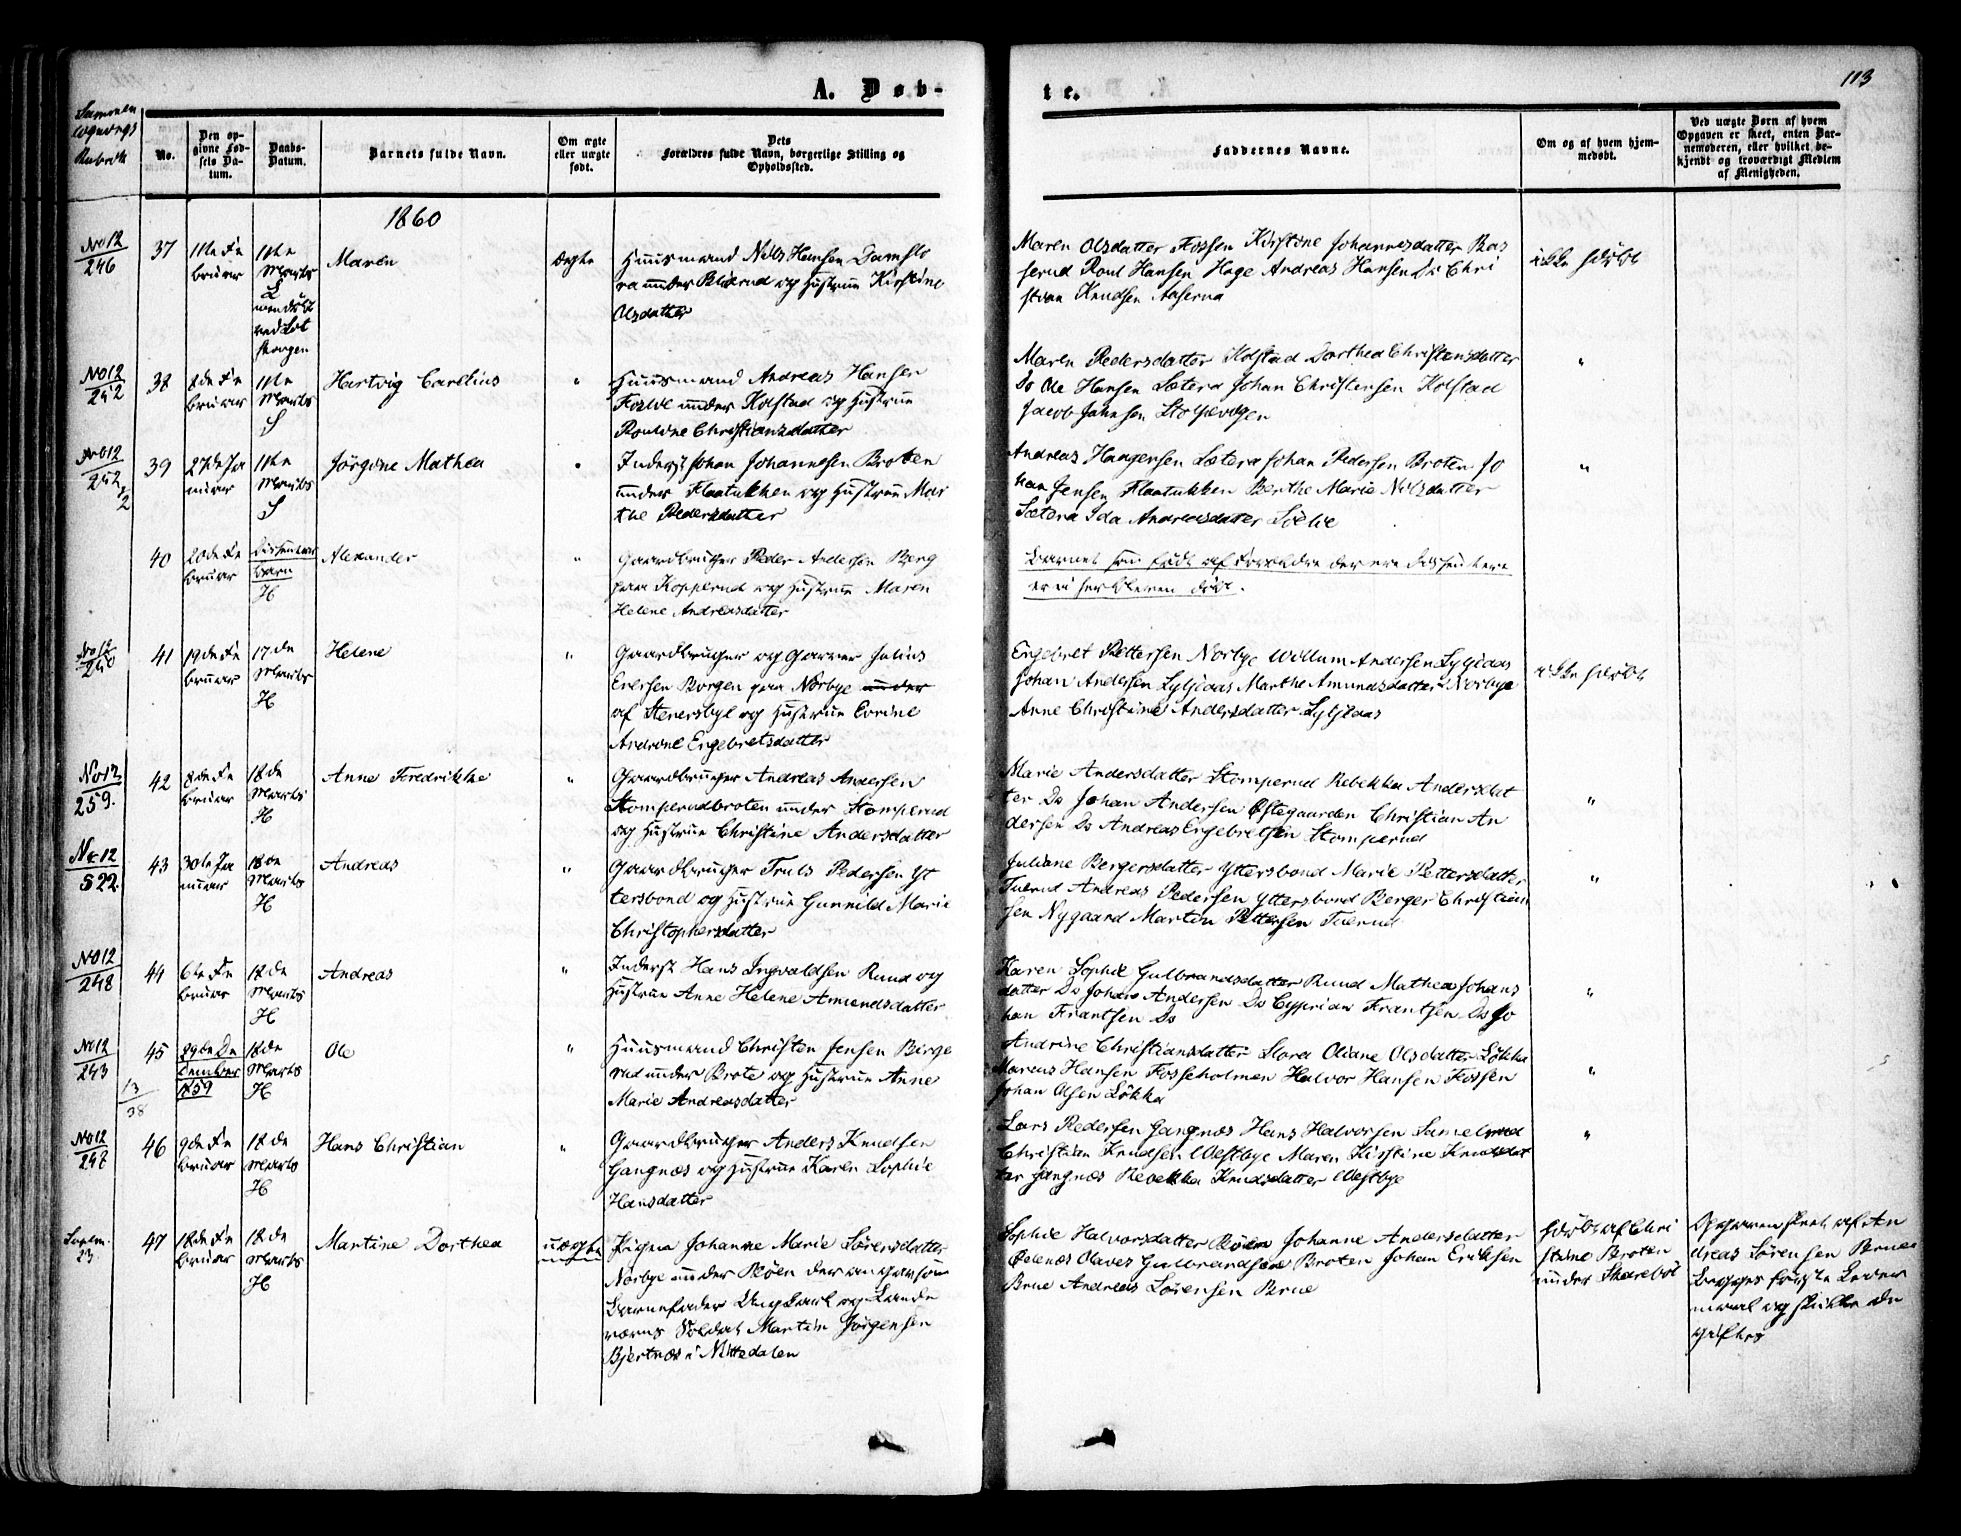 A. Døb-
te.
113
Sammen
lignings
Rubrik
No.
Den op-
givne Fød-
sels Da-
tum.
Daabs-
Datum.
Barnets fulde Navn.
Om ægte
eller uægte
født.
Dets
Forældres fulde Navn, borgerlige Stilling og
Opholdssted.
Faddernes Navne.
Om og af hvem hjem-
medøbt.
Ved uægte Børn af hvem
Opgaven er skeet, enten Bar-
nemoderen, eller hvilket be-
kjendt og troværdigt Medlem
af Menigheden.
1860
No 12
246
37
11te Fe
bruar
11te
Marts
Maren
ægte
Huusmand Nils Hansen Damslo
ra under Blixrud og Hustrue Kirstine
Olsdatter
Maren Olsdatter Fossen Kirstine Johannesdatter Ras
serud Poul Hansen Hage Andreas Hansen Do Chri
stian Knudsen Aaserna
ikke hdøbt
No 12
252
38
8de Fe
bruar
11te
Marts
S
Hartvig Carelius
"
Huusmand Andreas Hansen
under Kolstad og Hustrue
Pouline Christiansdatter
Maren Pedersdatter Kolstad Dorthea Christensdatter
Do Ole Hansen Sætera Johan Christensen Kolstad
Jacob Jahnsen
"
No 12
252
2
39
27de Ja
nuar
11te
Marts
S
Jörgine Mathea
"
Inderst Johan Johannesen Broten
under Flaatukken og Hustrue Mar
the Pedersdatter
Andreas Haagensen Sætera Johan Pedersen Broten Jo
han Jensen Flaatukken Berthe Marie Nilsdatter
Sætera Ida Andreasdatter
"
40
20de Fe
bruar
Dissenter
barn
H
Alexander
"
Gaardbruger Peder Andersen Berg
paa Kopperud og Hustrue Maren
Helene Andreasdatter
Barnet som født af Forældre der ere Dissentere
er ei her bleven døbt.
No 12
240
41
19de Fe
bruar
17de
Marts
H
Helene
"
Gaardbruger og Garver Julius
Eversen Borgen paa Norbye under
af Stenersbye og Hustrue Corine
Andrine Engebretsdatter
Engebret Pettersen Norbye Willum Andersen Lyljedas
Johan Andersen Lyljedas Marthe Amundsdatter Norbye
Anne Christine Andersdatter Lyljedas
ikke hdøbt
No 12
259.
42
8de Fe
bruar
18de
Marts
H
Anne Fredrikke
"
Gaardbruger Andreas Andersen
Stomperudbroten under Stomperud
og Hustrue Christine Andersdatter
Marie Andersdatter Stomperud Rebekka Andersdat
ter Do Johan Andersen Østegaarden Christian An
dersen Do Andreas Engebretsen Stomperud
"
No 12
522.
43
30te Ja
nuar
18de
Marts
H
Andreas
"
Gaardbruger Truls Pedersen Yt
tersbond og Hustrue Gunnild Marie
Christophersdatter
Juliane Bergersdatter Yttersbond Marie Pettersdatter
Tuerud Andreas Pedersen Yttersbond Berger Christian
sen Nygaard Martin Pettersen Tuerud
"
No 12
248
44
6te Fe
bruar
18de
Marts
H
Andreas
"
Inderst Hans Ingvaldsen Ruud og
Hustrue Anne Helene Amundsdatter
Karen Sophie Gulbrandsdatter Ruud Mathea Johans
datter Do Johan Andersen Do Cyprian Frantsen Do Jo
han Frantsen Do
"
No 12
243
13
38
45
29de De
cember
1859
18de
Marts
H
Ole
"
Huusmand Christen Jensen Birge
rud under Brote og Hustrue Anne
Marie Andreasdatter
Andrine Christiansdatter Slora Oliane Olsdatter Løkka
Marcus Hansen Fosseholmen Halvor Hansen Fossen
Johan Olsen Løkka
"
No 12
247
46
9de Fe
bruar
18de
Marts
H
Hans Christian
"
Gaardbruger Anders Knudsen
Gangnæs og Hustrue Karen Sophie
Hansdatter
Lars Pedersen Gangnæs Hans Halvorsen Samelrud
Christian Knudsen Westbye Maren Kirstine Knudsdat
ter Gangnæs Rebekka Knudsdatter Westbye
"
23
47
18de Fe
bruar
18de
Marts
H
Martine Dorthea
uægte
Pigen Johanne Marie Sörensdatter
Norbye under Röen der angav som
Barnefader Ungkarl og Lande
værns Soldat Martin Jörgensen
Bjertnæs i Nittedalen
Sophie Halvorsdatter Röen Johanne Andersdatter
Olaves Gulbrandsen Broten Johan Eriksen
Brue Andreas Sörensen Brue
Hdøbt af Chri
stine Broten
under Skarebøl
Opgaven skeet af An
dreas Sörensen Brue
Begges første Leier
maal og skulle de
giftes